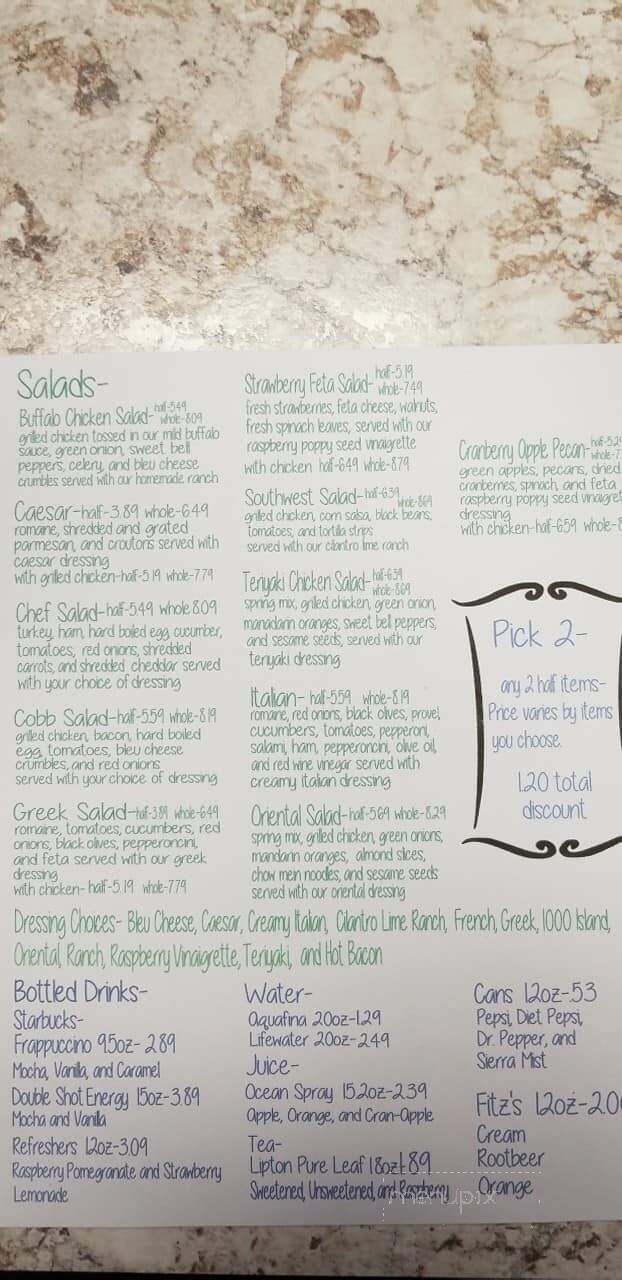 Salads-
Buffalo Chicken Salad- half-5.49
whole-8.09
grilled chicken tossed in our mild buffalo
sauce, green onion, sweet bell
peppers, celery, and bleu cheese
crumbles served with our homemade ranch
Caesar-half-3.89 whole-6.49
romaine, shredded and grated
parmesan, and croutons served with
caesar dressing
with grilled chicken-half-5.19 whole-7.79
Chef Salad-half-5.49 whole 8.09
turkey, ham, hard boiled egg, cucumber,
tomatoes, red onions, shredded
carrots, and shredded cheddar served
with your choice of dressing
Cobb Salad-half-5.59 whole-8.19
grilled chicken, bacon, hard boiled
egg, tomatoes, bleu cheese
crumbles, and red onions
served with your choice of dressing
Greek Salad-half-3.89 whole-6.49
romaine, tomatoes, cucumbers, red
onions, black olives, pepperoncini,
and feta served with our greek
dressing
with chicken- half-5.19 whole-7.79
Strawberry Feta Salad- half-5.19
whole-7.49
fresh strawberries, feta cheese, walnuts,
fresh spinach leaves, served with our
raspberry poppy seed vinaigrette
with chicken half-6.49 whole-8.79
Southwest Salad-half-6.39
whole-8.69
grilled chicken, corn salsa, black beans,
tomatoes, and tortilla strips
served with our cilantro lime ranch
Teriyaki Chicken Salad-half-6.39
whole-8.69
spring mix, grilled chicken, green onion,
manadarin oranges, sweet bell peppers,
and sesame seeds, served with our
teriyaki dressing
Italian- half-5.59 whole-8.19
romaine, red onions, black olives, provel,
cucumbers, tomatoes, pepperoni,
salami, ham, pepperoncini, olive oil,
and red wine vinegar served with
creamy italian dressing
Oriental Salad-half-5.69 whole-8.29
spring mix, grilled chicken, green onions,
mandarin oranges, almond slices,
chow mein noodles, and sesame seeds
served with our oriental dressing
Cranberry Apple Pecan-half-5.29
green apples, pecans, dried
cranberries, spinach, and feta
raspberry poppy seed vinaigret
dressing
with chicken-half-6.59 whole-8
Pick 2-
any 2 half items-
Price varies by items
you choose.
1.20 total
discount
Dressing Choices- Bleu Cheese, Caesar, Creamy Italian, Cilantro Lime Ranch, French, Greek, 1000 Island,
Oriental, Ranch, Raspberry Vinaigrette, Teriyaki, and Hot Bacon
Bottled Drinks-
Starbucks-
Frappuccino 9.5oz- 2.89
Mocha, Vanilla, and Caramel
Double Shot Energy 15oz-3.89
Mocha and Vanilla
Refreshers 12oz-3.09
Raspberry Pomegranate and Strawberry
Lemonade
Water-
Aquafina 20oz-1.29
Lifewater 20oz-2.49
Juice-
Ocean Spray 15.2oz-2.39
Apple, Orange, and Cran-Apple
Tea-
Lipton Pure Leaf 18oz-1.89
Sweetened, Unsweetened, and Raspberry
Cans 12oz-.53
Pepsi, Diet Pepsi,
Dr. Pepper, and
Sierra Mist
Fitz's 12oz-2.0
Cream
Rootbeer
Orange
menupix